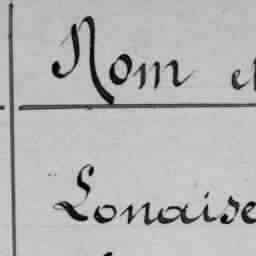 Nom et
Lonaise